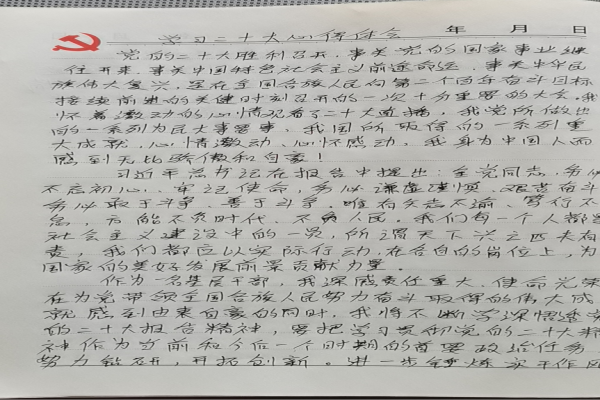 学习二十大心得体会 年 月 日
党的二十大胜利召开，事关党的国家事业继
往开来，事关中国特色社会主义前途命运，事关中华民
族伟大复兴，是在全国各族人民向第二个百年奋斗目标
接续前进的关键时刻召开的一次十分重要的大会。我
怀着激动的心情观看了二十大直播，我党所做出
的一系列为民大事要事，我国所取得的一系列重
大成就，心情激动、心怀感动，我身为中国人而
感到无比骄傲和自豪！
习近平总书记在报告中提出：全党同志，务必
不忘初心、牢记使命，务必谦虚谨慎、艰苦奋斗
务必敢于斗争、善于斗争，唯有矢志不渝、笃行不
怠，方能不负时代、不负人民。我们每一个人都是
社会主义建设中的一员，所谓天下兴亡匹夫有
责，我们都应以实际行动，在各自的岗位上，为
国家的美好发展前景贡献力量。
作为一名基层干部，我深感责任重大、使命光荣
在为党带领全国各族人民努力奋斗取得的伟大成
就感到由衷自豪的同时，我将不断学深悟透党
的二十大报告精神，要把学习贯彻党的二十大精
神作为当前和今后一个时期的首要政治任务
努力钻研，开拓创新。进一步锤炼实干作风